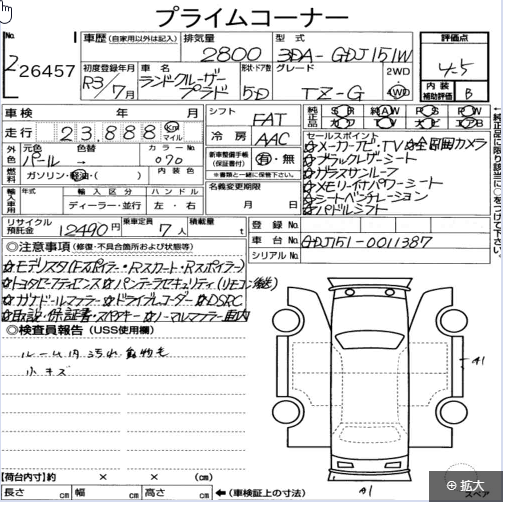 プライムコーナー
No.
2 26457
車歴 (自家用以外は記入)
排気量 2800
型式 3DA-GDJ151W
評価点 4.5
内装 補助評価 B
初度登録年月 R3/7月
車名 ランドクルーザープラド
形状・ドア数 5D
グレード TZ-G
2WD
4WD
車検 年 月
走行 23,888 Km マイル
シフト FAT
冷房 AAC
純正品
外色 元色 パール 色替 → カラーNo. 070
燃料 ガソリン・軽油・( ) 内装色
新車整備手帳(保証書付) 有・無
※書類と一緒に保管下さい。
名義変更期限 月 日
輸入車用 年式 輸入区分 ディーラー・並行 ハンドル 左・右
セールスポイント
☆メーカーナビ、TV ☆全周囲カメラ
☆ブラックレザーシート
☆ガラスサンルーフ
☆メモリー付パワーシート
☆シートベンチレーション
☆パドルシフト
←純正品に限り該当に○をつけて下さい。
リサイクル預託金 12490円
乗車定員 7人
積載量 t
登録No.
車台No. GDJ151-0011387
シリアルNo.
◎注意事項 (修復・不具合箇所および状態等)
☆モデリスタ(Fスポイラー・Rスカート・Rスポイラー)
☆トヨタセーフティセンス ☆パンテーラセキュリティ(リモコン後送)
☆ガナドールマフラー ☆ドライブレコーダー ☆DSRC
☆取説・保証書・スペアキー ☆ノーマルマフラー車内
◎検査員報告 (USS使用欄)
ルーム内汚れ
小キズ
A1
A1
【荷台内寸】約 × × (cm)
長さ cm 幅 cm 高さ cm ←(車検証上の寸法)
スペア
拡大